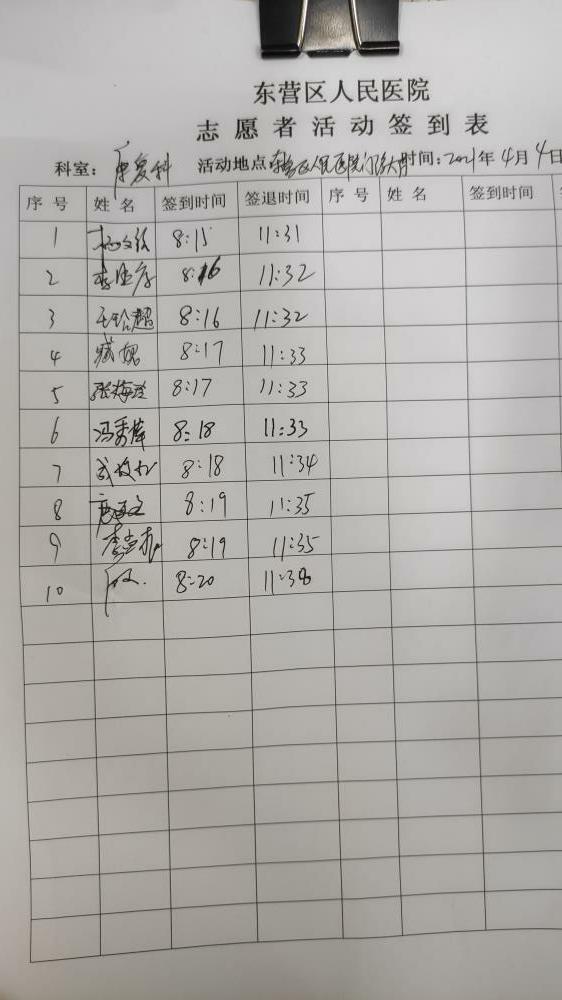 东营区人民医院
志愿者活动签到表
科室：康复科 活动地点：东营区人民医院门诊大厅 时间：2021年4月4日
序号 姓名 签到时间 签退时间 序号 姓名 签到时间
1 8:15 11:31
2 8:16 11:32
3 王玲超 8:16 11:32
4 8:17 11:33
5 张梅 8:17 11:33
6 冯秀萍 8:18 11:33
7 8:18 11:34
8 8:19 11:35
9 8:19 11:35
10 8:20 11:38